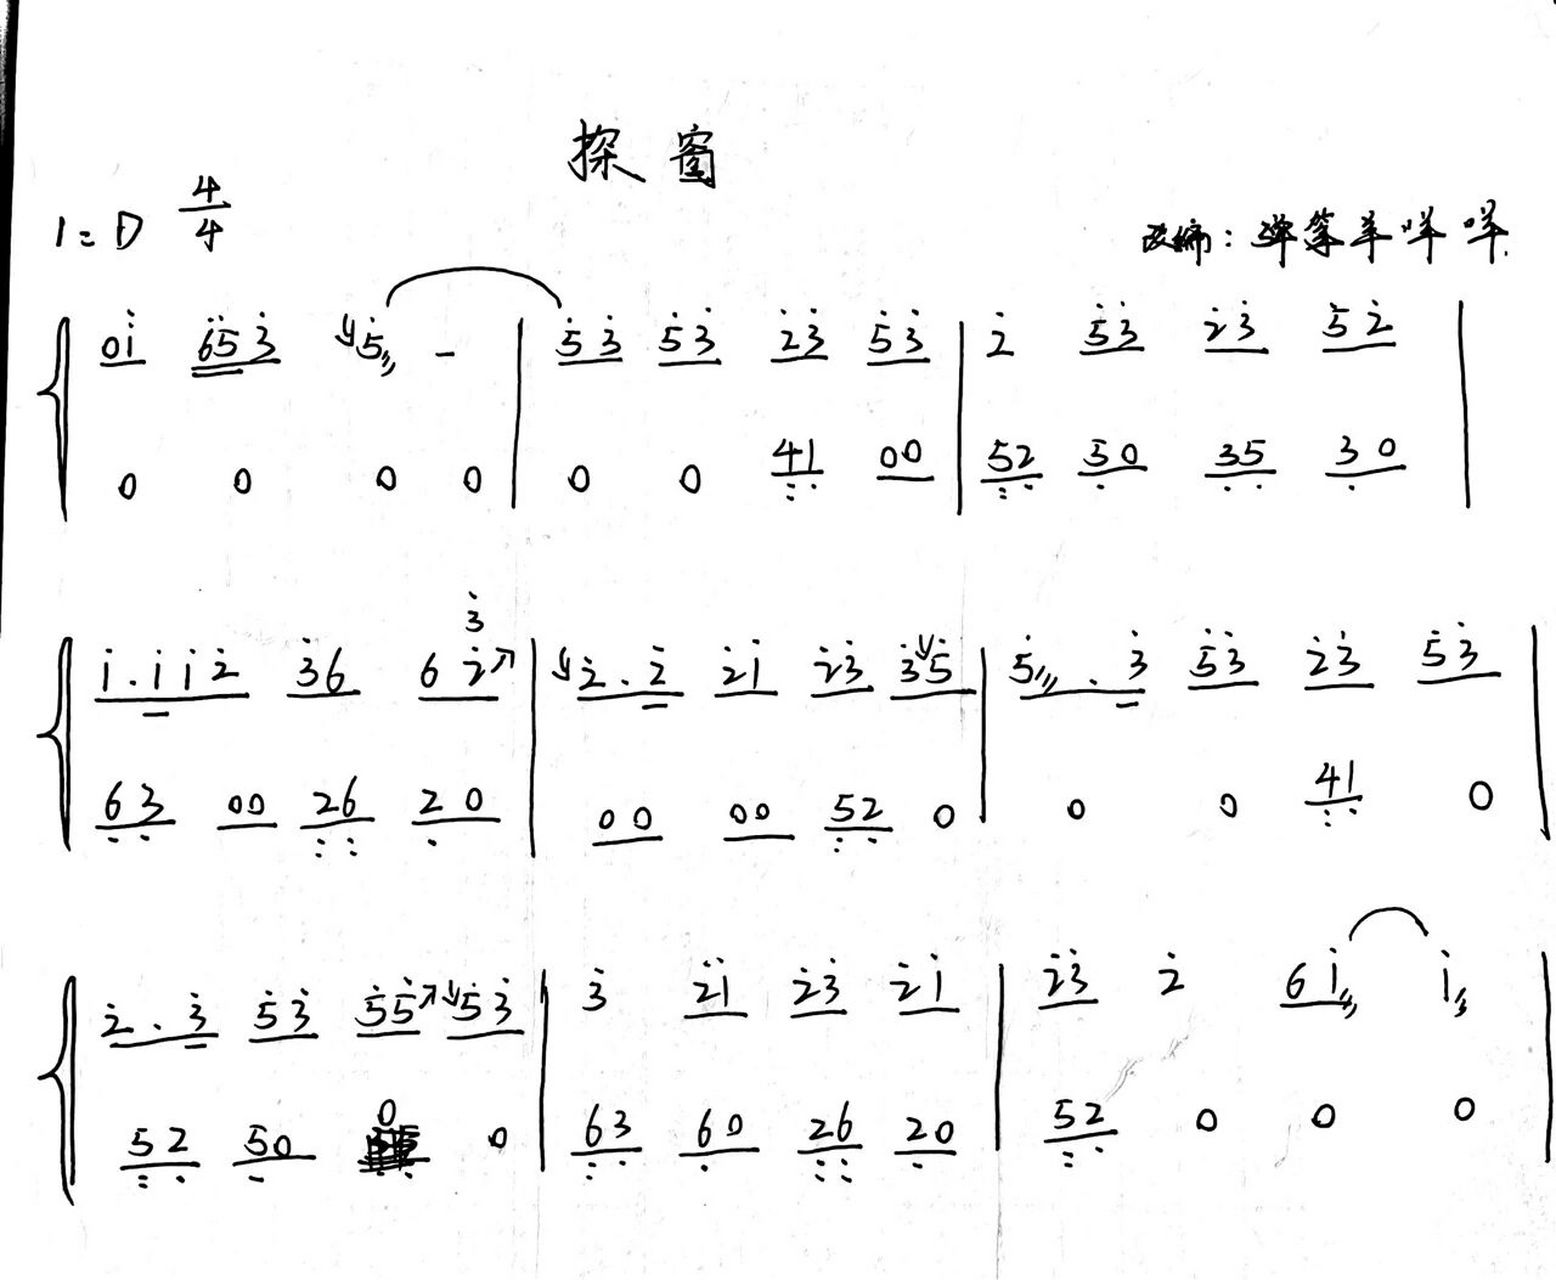 探窗
1=D 4/4
改编: 弹筝羊咩咩
01 653 5 - | 53 53 23 53 | 2 53 23 52 |
0 0 0 0 | 0 0 41 00 | 52 50 35 30 |
3
1.112 36 62↗ | 2.2 21 23 35 | 5.3 53 23 53 |
63 00 26 20 | 00 00 52 0 | 0 0 41 0 |
2.3 53 55↗ 53 | 3 21 23 21 | 23 2 61 1 |
52 50 0 0 | 63 60 26 20 | 52 0 0 0 |